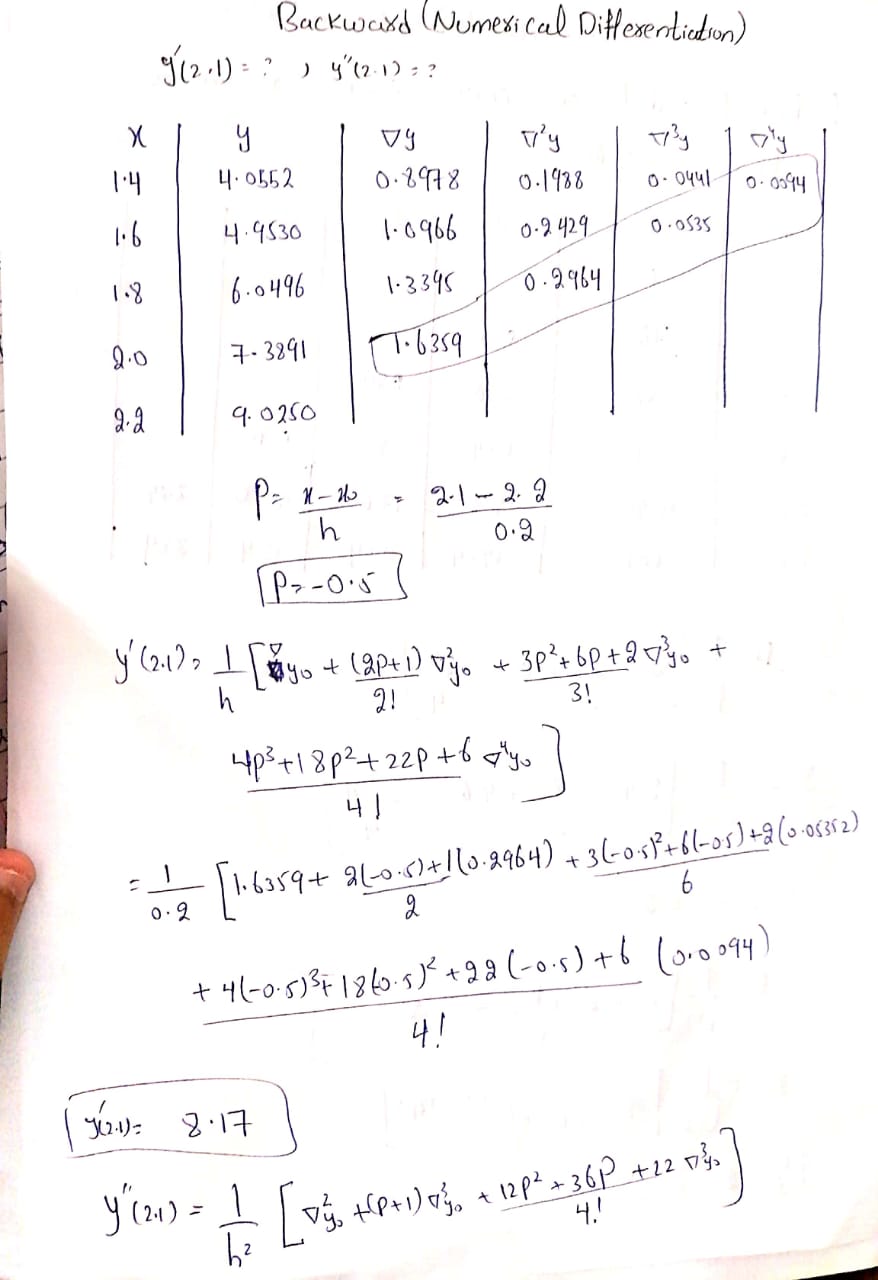 Backward (Numerical Differentiation)
y'(2.1) = ? , y''(2.1) = ?
x | y | ∇y | ∇²y | ∇³y | ∇⁴y
1.4 | 4.0552 | 0.8978 | 0.1988 | 0.0441 | 0.0094
1.6 | 4.9530 | 1.0966 | 0.2429 | 0.0535
1.8 | 6.0496 | 1.3395 | 0.2964
2.0 | 7.3891 | 1.6359
2.2 | 9.0250
P = x - x₀ / h = 2.1 - 2.2 / 0.2
P = -0.5
y'(2.1) = 1/h [∇y₀ + (2p+1)/2! ∇²y₀ + 3p²+6p+2/3! ∇³y₀ +
4p³+18p²+22p+6/4! ∇⁴y₀]
= 1/0.2 [1.6359 + 2(-0.5)+1(0.2964)/2 + 3(-0.5)²+6(-0.5)+2(0.05352)/6
+ 4(-0.5)³+18(-0.5)²+22(-0.5)+6 (0.0094)/4!
y'(2.1) = 8.17
y''(2.1) = 1/h² [∇²y₀ + (p+1)∇³y₀ + 12p²+36p+22/4! ∇³y₀]